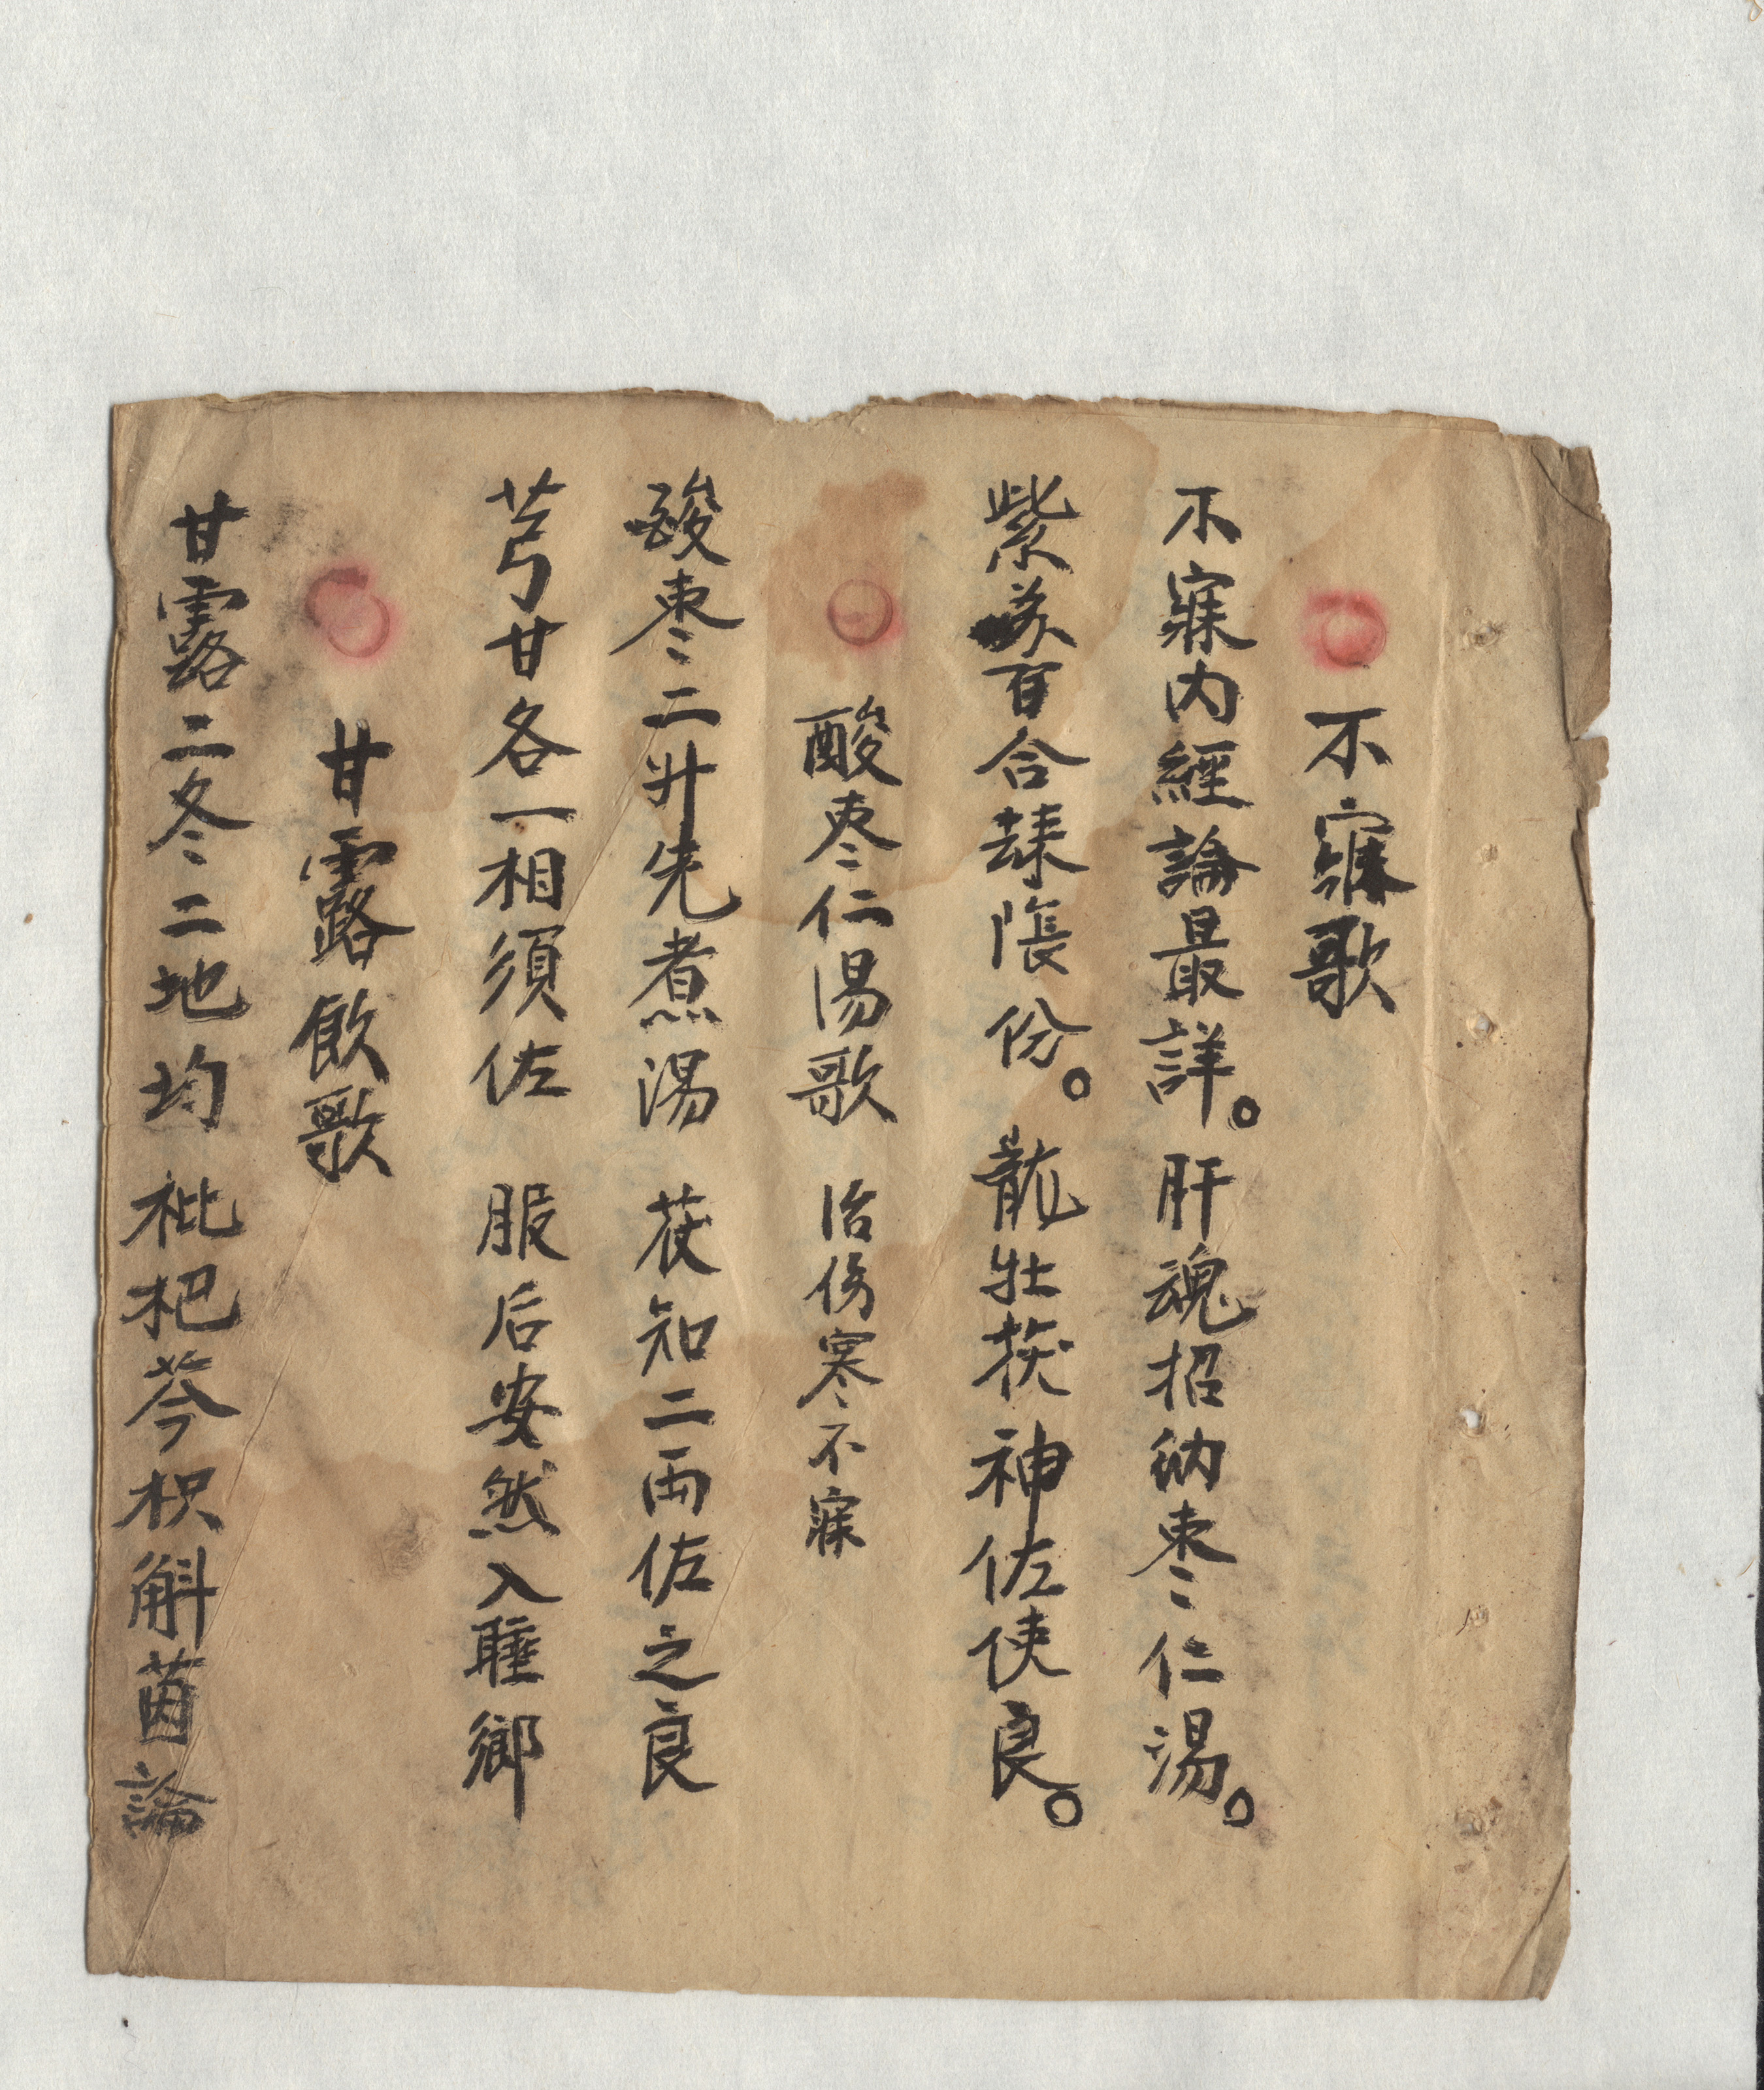 不寐歌
不寐内經論最詳。肝魂招納枣仁湯。
紫蘇百合份。龍牡茯神佐使良。
酸枣仁湯歌 治伤寒不寐
酸枣二升先煮湯 茯知二両佐之良
芎甘各一相須佐 服后安然入睡鄉
甘露飲歌
甘露二冬二地均 枇杷芩枳斛茵論